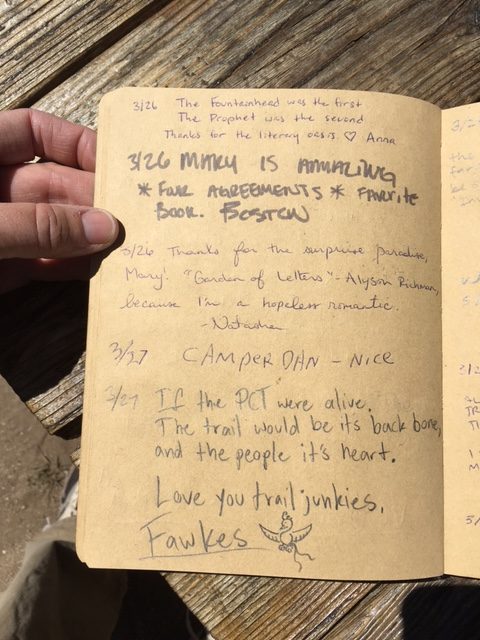 3/26 The Fountainhead was the first
The Prophet was the second
Thanks for the literary oasis. ♡ Anna
3/26 MARY IS AMAZING
* FOUR AGREEMENTS * FAVRITE
BOOK. BOSTON
3/26 Thanks for the surprise paradise,
Mary! "Garden of Letters" - Alyson Richman,
because I'm a hopeless romantic.
- Natasha
3/27 CAMPER DAN - NICE
3/27 If the PCT were alive.
The trail would be it's back bone,
and the people it's heart.
Love you trail junkies,
Fawkes